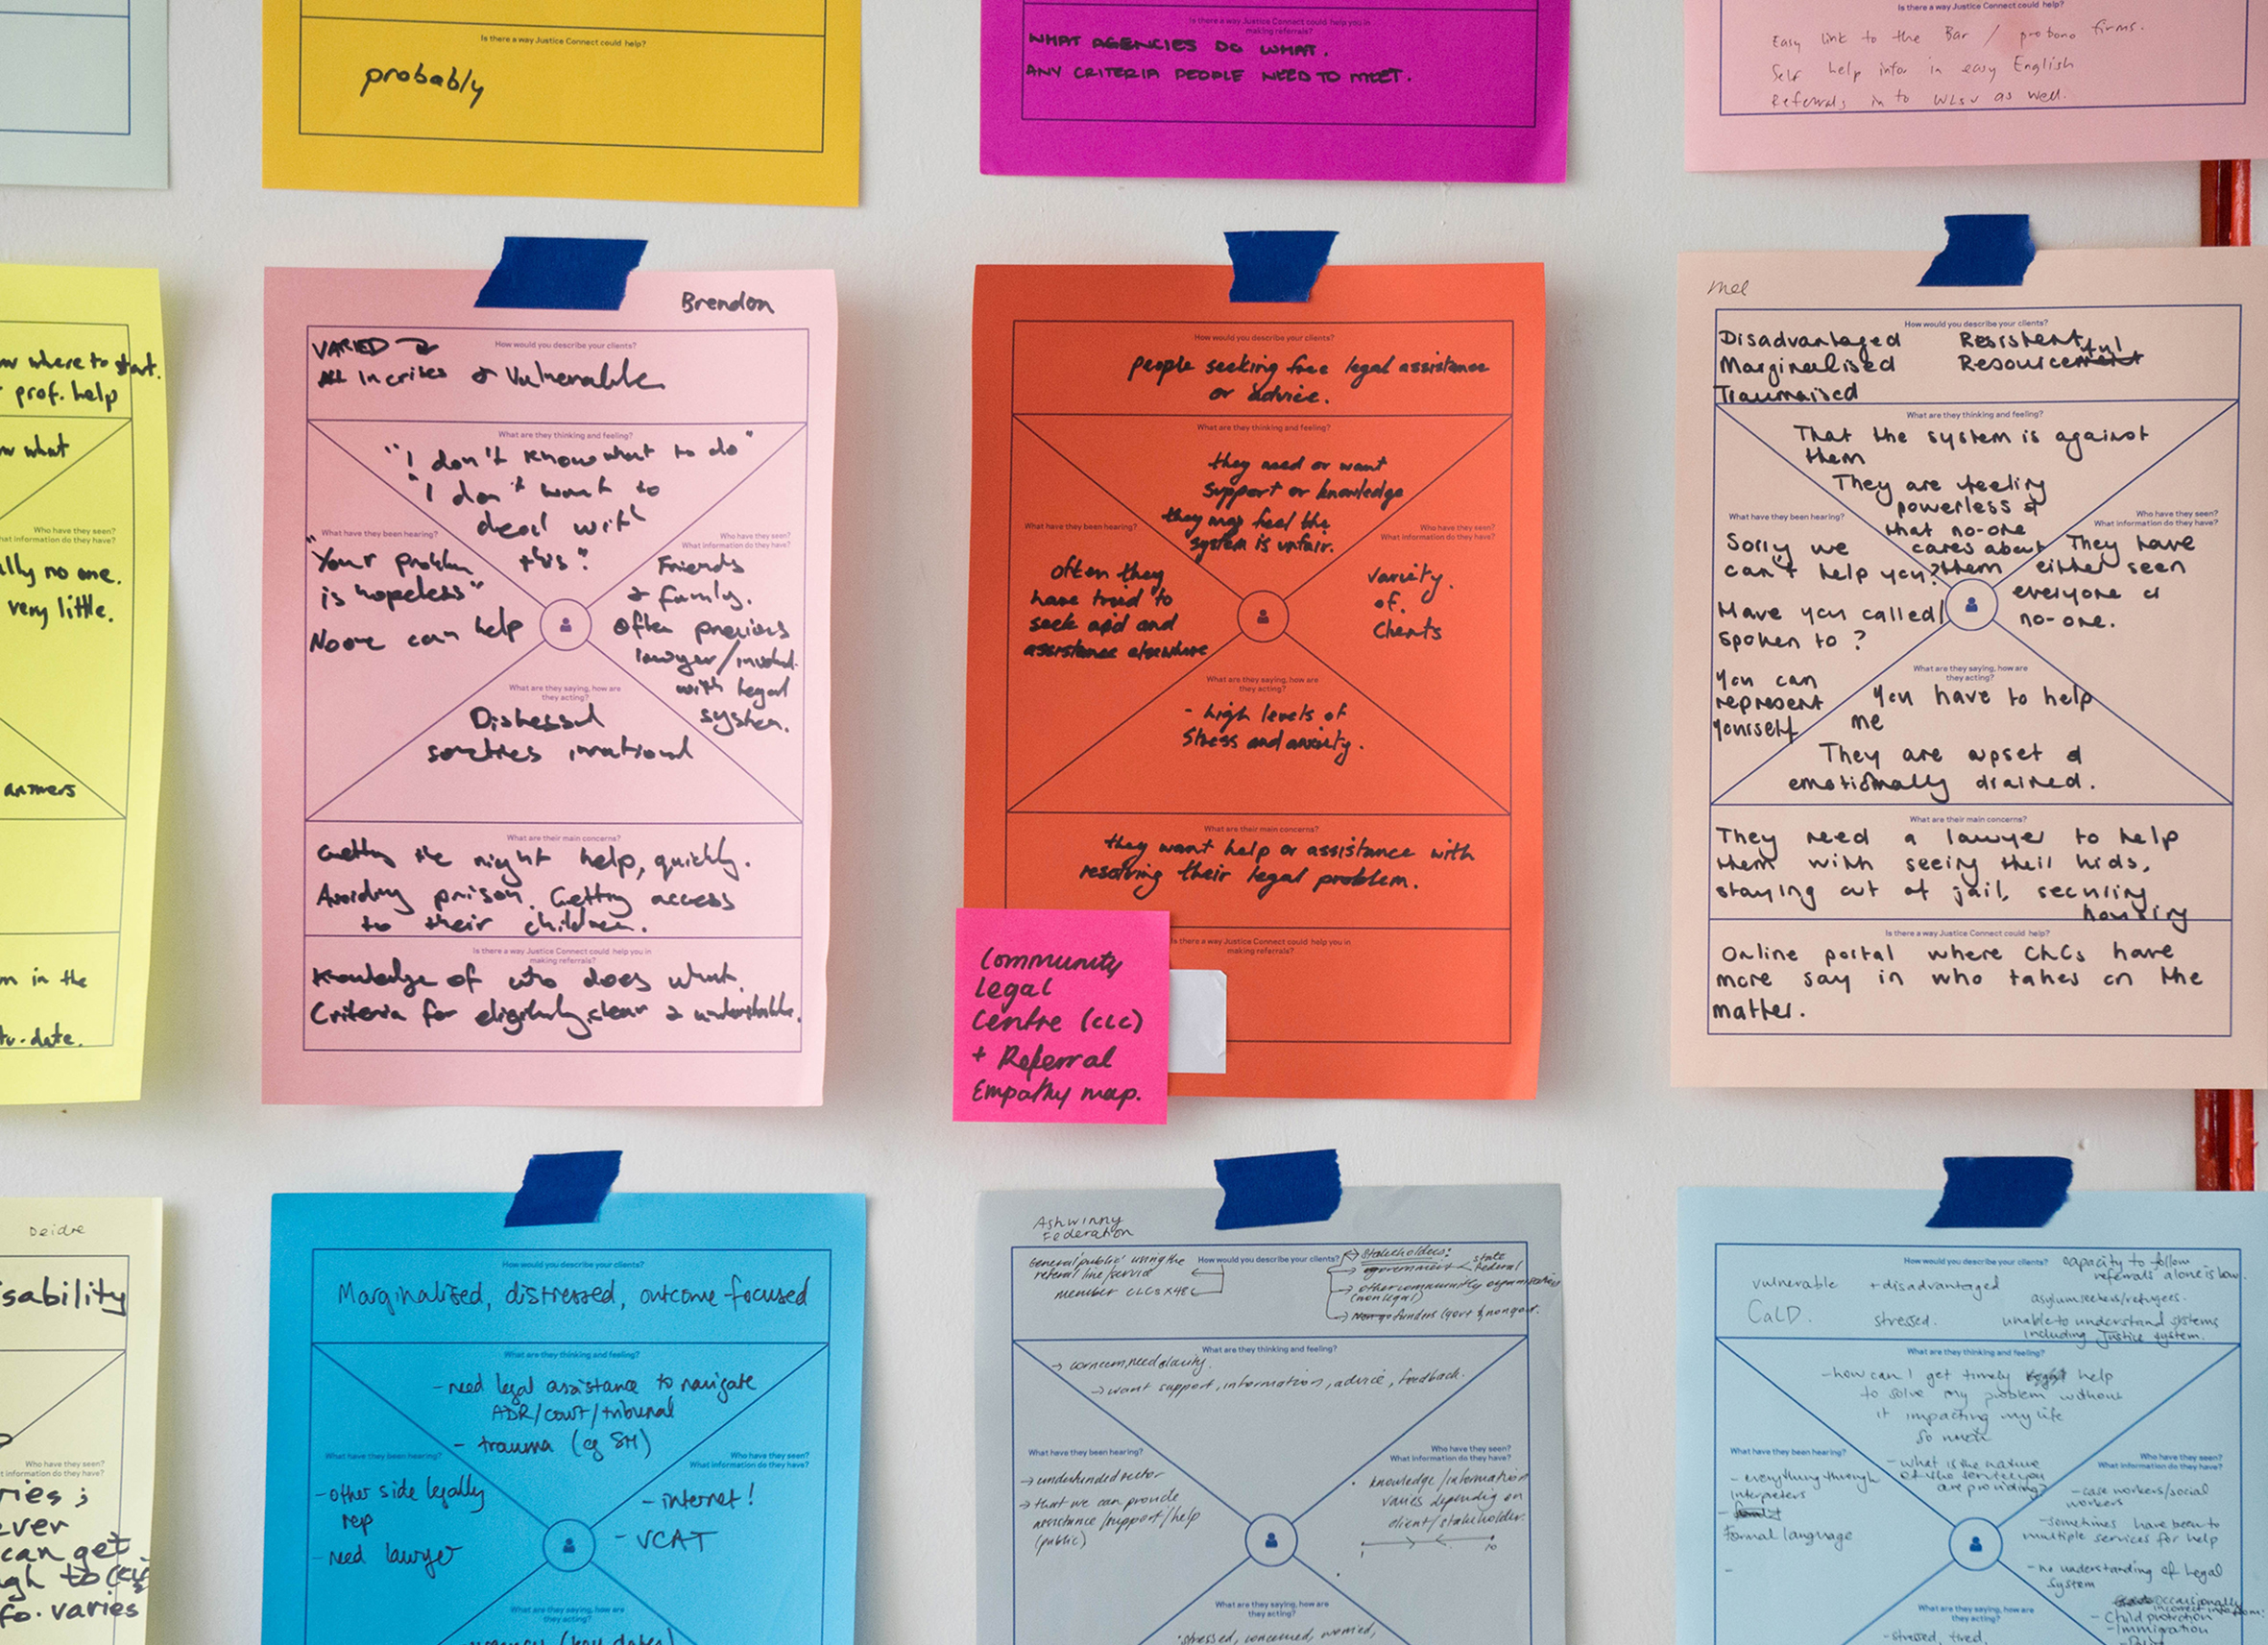 Is there a way Justice Connect could help?
probably
Is there a way Justice Connect could help you in
making referrals?
WHAT AGENCIES DO WHAT.
ANY CRITERIA PEOPLE NEED TO MEET.
Is there a way Justice Connect could help?
Easy link to the Bar / probono firms.
Self help infor in easy English
Referrals in to WLSV as well.
where to start.
prof. help
what
Who have they seen?
What information do they have?
no one.
very little.
answers
in the
date.
Brendon
How would you describe your clients?
VARIED
& Vulnerable
What are they thinking and feeling?
"I don't know what to do"
"I don't want to
deal with
this."
What have they been hearing?
"Your problem
is hopeless"
No one can help
Who have they seen?
What information do they have?
Friends
& family.
Often previous
lawyer/involved
with legal
system.
What are they saying, how are
they acting?
Distressed
sometimes irrational
What are their main concerns?
Getting the right help, quickly.
Avoiding prison. Getting access
to their children.
Is there a way Justice Connect could help you in
making referrals?
Knowledge of who does what.
Criteria for eligibility clear & understandable.
How would you describe your clients?
people seeking free legal assistance
or advice.
What are they thinking and feeling?
they need or want
support or knowledge
they may feel the
system is unfair.
What have they been hearing?
often they
have tried to
seek aid and
assistance elsewhere
Who have they seen?
What information do they have?
Variety
of
Clients
What are they saying, how are
they acting?
- high levels of
stress and anxiety.
What are their main concerns?
they want help or assistance with
resolving their legal problem.
Is there a way Justice Connect could help you in
making referrals?
Community
Legal
Centre (CLC)
+ Referral
Empathy map.
Mel
How would you describe your clients?
Disadvantaged Resistent
Marginalised Resourceful
Traumatised
What are they thinking and feeling?
That the system is against
them
They are feeling
powerless &
that no-one
cares about
them
What have they been hearing?
Sorry we
can't help you?
Have you called/
spoken to?
You can
represent
yourself
Who have they seen?
What information do they have?
They have
either seen
everyone or
no-one.
What are they saying, how are
they acting?
You have to help
me
They are upset &
emotionally drained.
What are their main concerns?
They need a lawyer to help
them with seeing their kids,
staying out of jail, securing
housing
Is there a way Justice Connect could help?
Online portal where CLCs have
more say in who takes on the
matter.
Deidre
Who have they seen?
What information do they have?
can get
varies
How would you describe your clients?
Marginalised, distressed, outcome focused
What are they thinking and feeling?
- need legal assistance to navigate
ADR/court/tribunal
- trauma (eg SH)
What have they been hearing?
- other side legally
rep
- need lawyer
Who have they seen?
What information do they have?
- internet!
- VCAT
What are they saying, how are
they acting?
Ashwinny
Federation
How would you describe your clients?
General 'public' using the
referral line/service
member CLCs x48
Stakeholders:
government
state
federal
other community organisations
(non legal)
funders (govt & nongovt.
What are they thinking and feeling?
→ concern, need clarity.
→ want support, information, advice, feedback.
What have they been hearing?
→ underfunded sector
→ that we can provide
assistance/support/help
(public)
Who have they seen?
What information do they have?
• knowledge/information
varies depending on
client/stakeholder.
1 10
What are they saying, how are
they acting?
• stressed, concerned, worried,
How would you describe your clients?
vulnerable + disadvantaged
CaLD. stressed.
capacity to follow
referrals alone is low.
asylum seekers/refugees.
unable to understand systems
including Justice system.
What are they thinking and feeling?
- how can I get timely help
to solve my problem without
it impacting my life
so much
- what is the nature
of the service you
are providing?
What have they been hearing?
- everything through
interpreters
Formal language
Who have they seen?
What information do they have?
- case workers/social
workers
- sometimes have been to
multiple services for help
- no understanding of legal
system
occasionally
- Child protection
- Immigration
What are they saying, how are
they acting?
- stressed, tired,